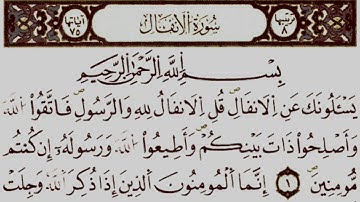 ترتيبها ٨ سُورَةُ الْاَنْفَالِ آياتها ٧٥
بِسْمِ اللّٰهِ الرَّحْمٰنِ الرَّحِيمِ
يَسْـَٔلُونَكَ عَنِ الْاَنْفَالِ قُلِ الْاَنْفَالُ لِلّٰهِ وَالرَّسُولِ فَاتَّقُوا اللّٰهَ
وَاَصْلِحُوا ذَاتَ بَيْنِكُمْ وَاَطِيعُوا اللّٰهَ وَرَسُولَهُٓ اِنْ كُنْتُمْ
مُؤْمِنِينَ ١ اِنَّمَا الْمُؤْمِنُونَ الَّذِينَ اِذَا ذُكِرَ اللّٰهُ وَجِلَتْ